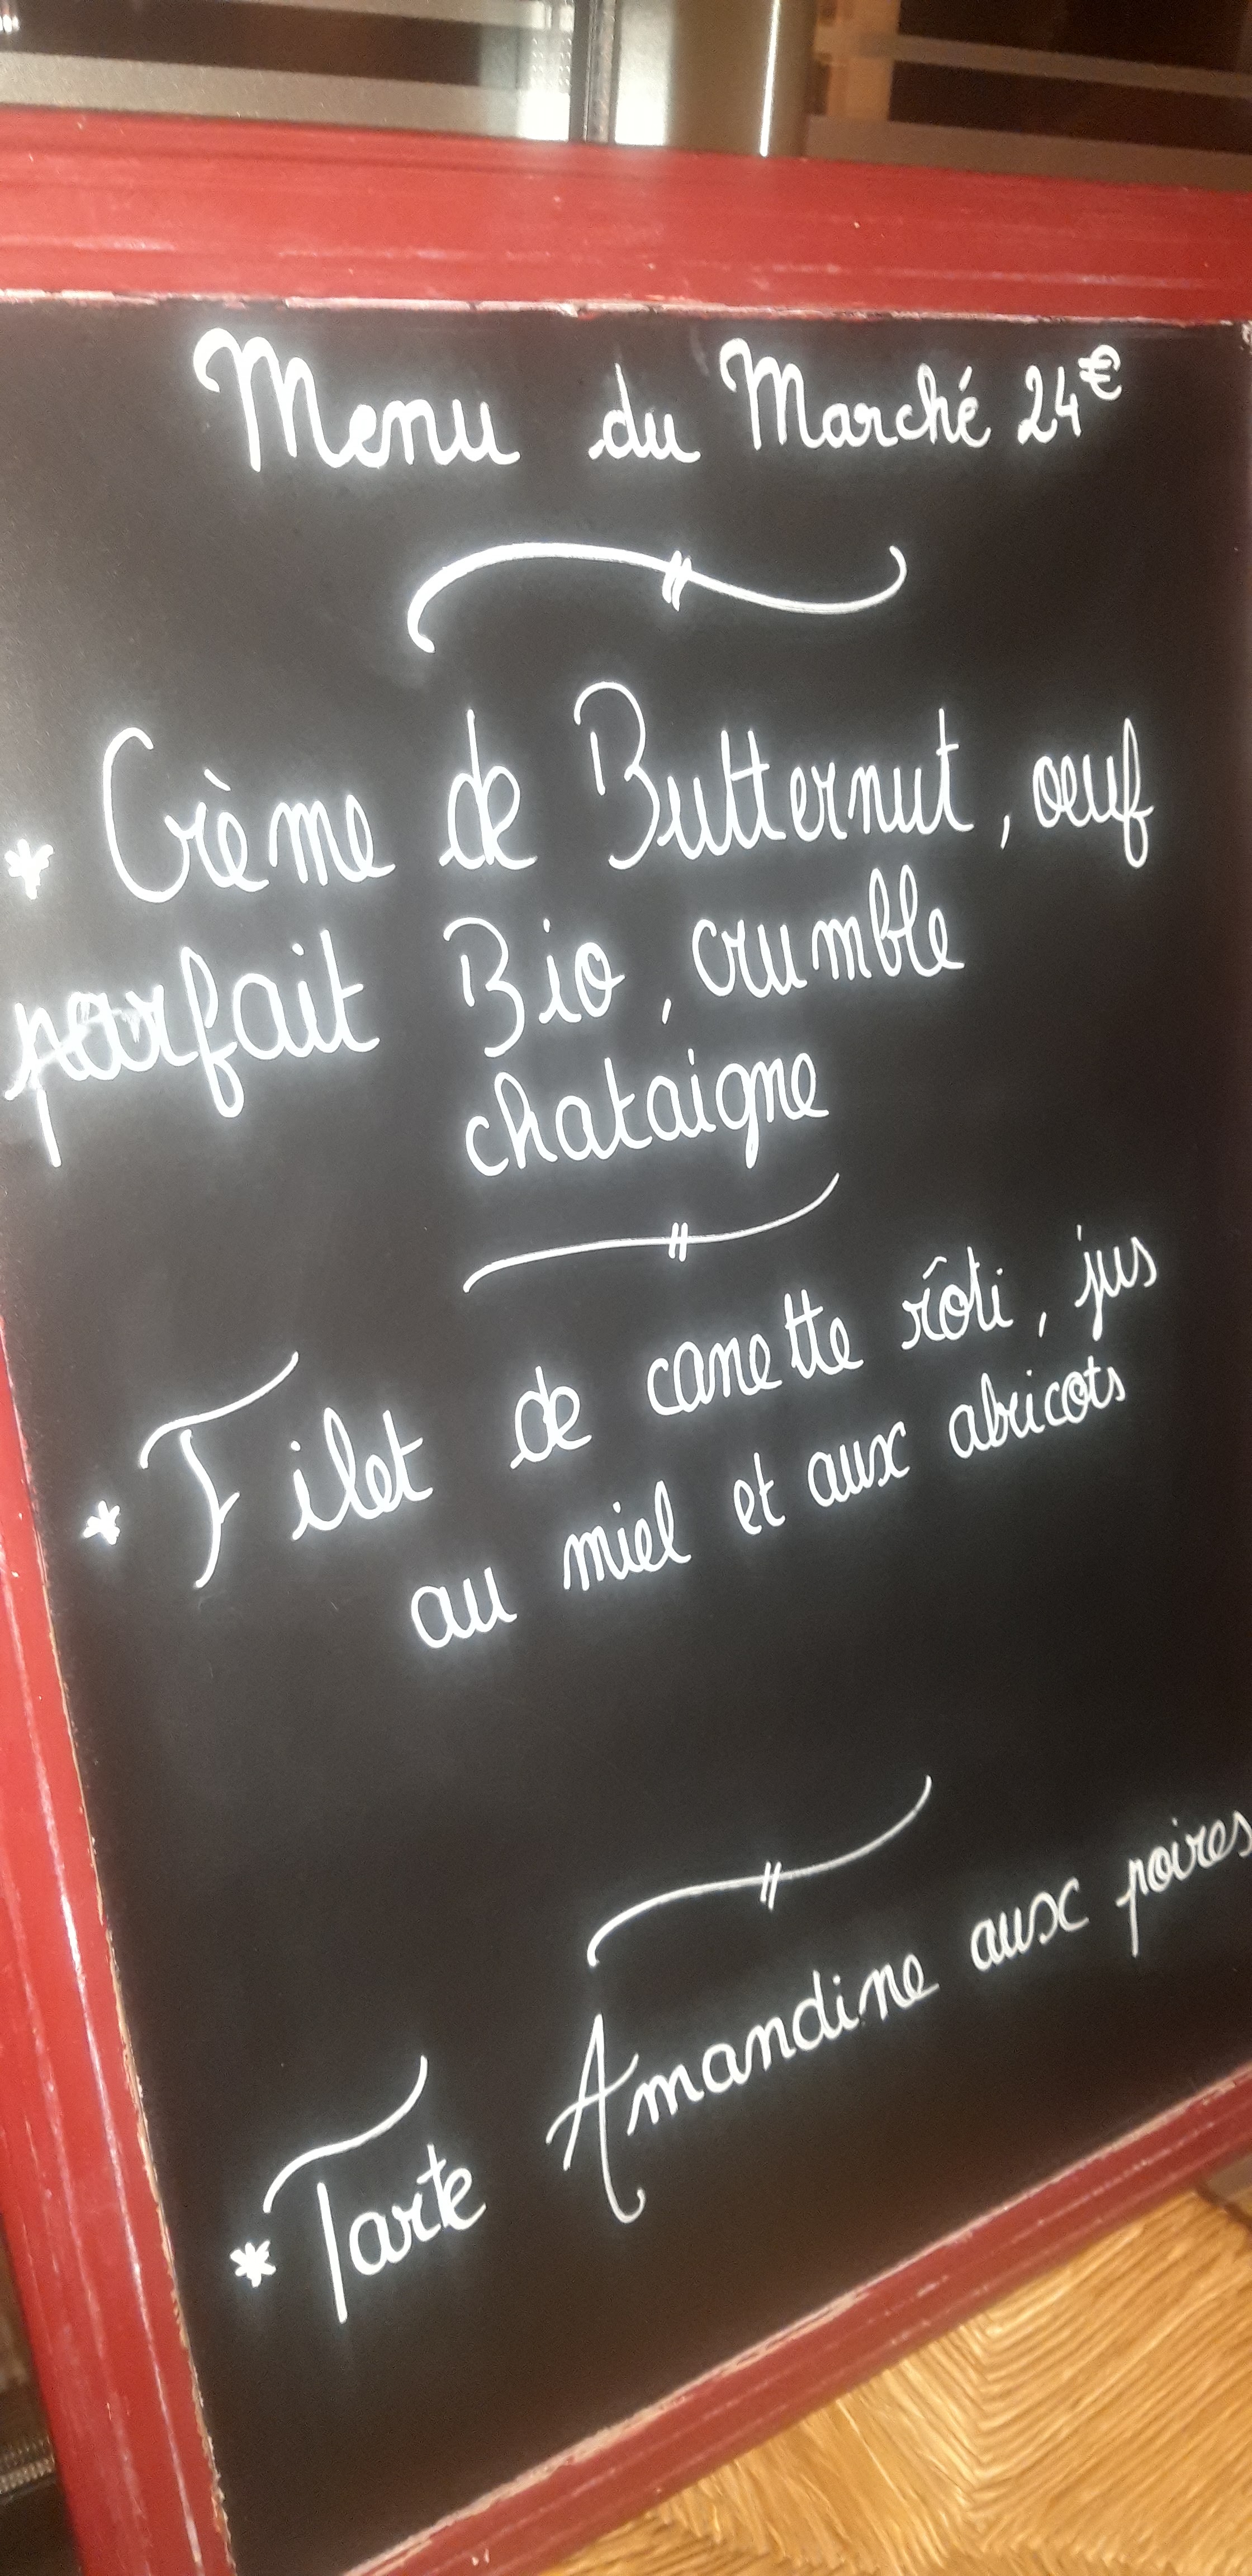 Menu du Marché 24€
* Crème de Butternut, oeuf
parfait Bio, crumble
chataigne
* Filet de canette rôti, jus
au miel et aux abricots
* Tarte Amandine aux poires